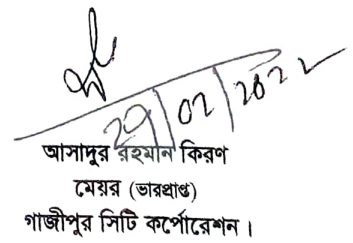 ২০/০২/২০২২
আসাদুর রহমান কিরণ
মেয়র (ভারপ্রাপ্ত)
গাজীপুর সিটি কর্পোরেশন।